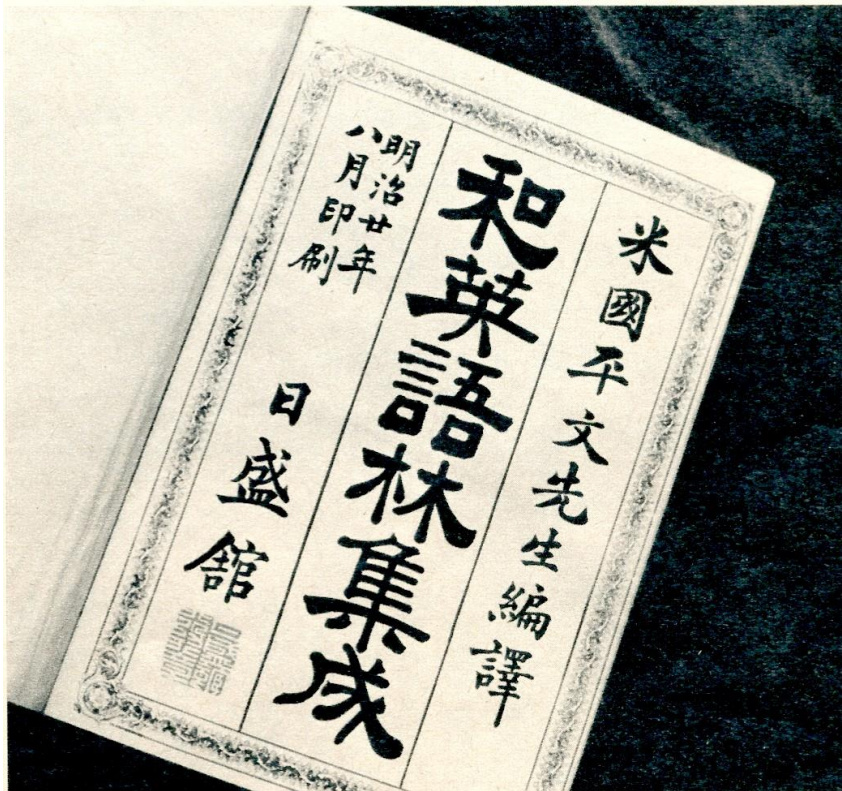 米國平文先生編譯
和英語林集成
明治廿年
八月印刷
日盛舘